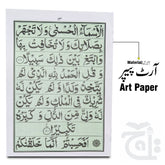 الْأَسْمَاءُ الْحُسْنٰى وَلَا تَجْهَرْ
بِصَلَاتِكَ وَلَا تُخَافِتْ بِهَا
وَابْتَغِ بَيْنَ ذٰلِكَ سَبِيْلًا وَقُلِ
الْحَمْدُ لِلّٰهِ الَّذِيْ لَمْ يَتَّخِذْ
وَلَدًا وَّلَمْ يَكُنْ لَّهُ شَرِيْكٌ فِي
الْمُلْكِ وَلَمْ يَكُنْ لَّهُ وَلِيٌّ
مِّنَ الذُّلِّ وَكَبِّرْهُ
تَكْبِيْرًا
أَفَحَسِبْتُمْ أَنَّمَا
Material:
آرٹ پیپر
Art Paper